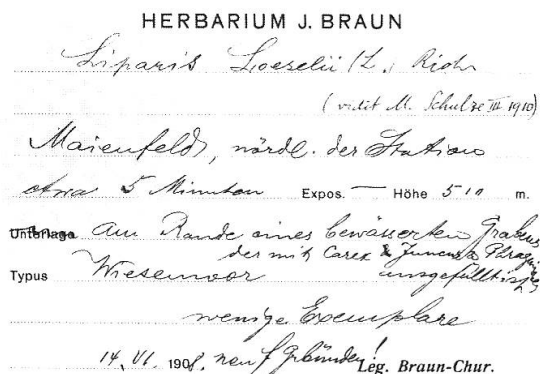 HERBARIUM J. BRAUN
Liparis Loeselii (L.) Rich
(vidit M. Schulze III 1910)
Maienfeld, nördl. der Station
etwa 5 Minuten Expos. — Höhe 510 m.
Unterlage Am Rande eines bewässerten Grabens
der mit Carex & Juncus & Phragmites
Typus Wiesenmoor ausgefüllt ist
wenige Exemplare
14. VI. 1908. neu f. Gbünden! Leg. Braun-Chur.